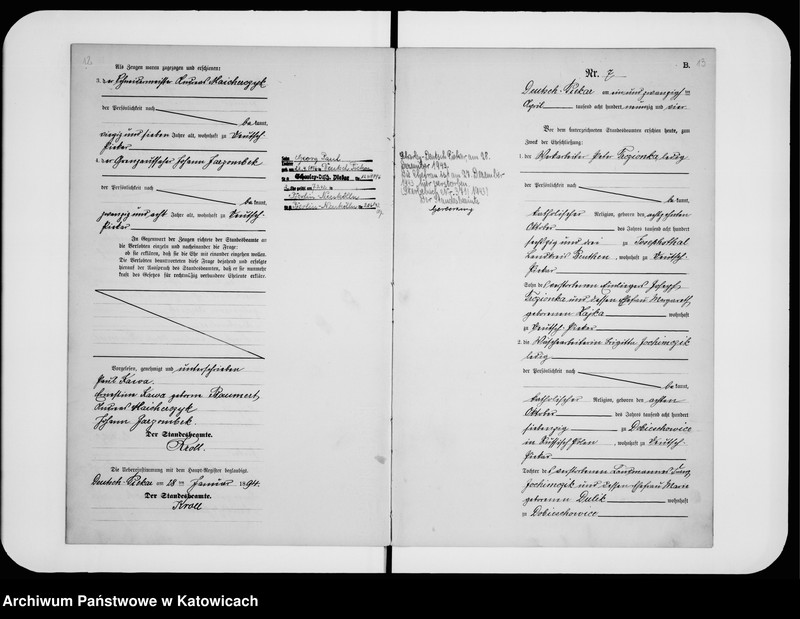 12
Als Zeugen waren zugezogen und erschienen:
3. der Schneidermeister Andreas Maicherczyk
der Persönlichkeit nach
be kannt,
vierzig und sieben Jahre alt, wohnhaft zu Deutsch-
Piekar
4. der Johann Jarzombek
der Persönlichkeit nach
be kannt,
zwanzig und acht Jahre alt, wohnhaft zu Deutsch-
Piekar
In Gegenwart der Zeugen richtete der Standesbeamte an
die Verlobten einzeln und nacheinander die Frage:
ob sie erklären, daß sie die Ehe mit einander eingehen wollen.
Die Verlobten beantworteten diese Frage bejahend und erfolgte
hierauf der Ausspruch des Standesbeamten, daß er sie nunmehr
kraft des Gesetzes für rechtmäßig verbundene Eheleute erkläre.
Vorgelesen, genehmigt und unterschrieben
Paul Kawa.
Ernestine Kawa geborene Baumert
Andreas Maicherczyk
Johann Jarzombek.
Der Standesbeamte.
Kroll.
Die Uebereinstimmung mit dem Haupt-Register beglaubigt.
Deutsch-Piekar am 18 ten Januar 1894.
Der Standesbeamte.
Kroll
Georg Paul
Deutsch Piekar
Scharley-Dtsch. Piekar
Berlin-Neukölln
Berlin-Neukölln
Scharley-Deutsch Piekar, am 28.
1942
Die Ehefrau ist am 27. Dezember
verstorben
Der Standesbeamte
B.
13
Nr. 7
Deutsch-Piekar am ein und zwanzigsten
April tausend acht hundert neunzig und vier
Vor dem unterzeichneten Standesbeamten erschienen heute, zum
Zweck der Eheschließung:
1. der Peter Trzionka ledig
der Persönlichkeit nach
be kannt,
katholischer Religion, geboren den achtzehnten
Oktober des Jahres tausend acht hundert
sechszig und drei zu Josephsthal
Landkreis Beuthen, wohnhaft zu Deutsch-
Piekar
Sohn des verstorbenen Einliegers Joseph
Trzionka und dessen Ehefrau Margareth
geborenen Zajka wohnhaft
zu Deutsch-Piekar
2. die Brigitta Jochimczik
ledig
der Persönlichkeit nach
be kannt,
katholischer Religion, geboren den achten
Oktober des Jahres tausend acht hundert
siebenzig zu Dobieschowice
in Russisch Polen, wohnhaft zu Deutsch-
Piekar
Tochter des verstorbenen
Jochimczik und dessen Ehefrau Marie
geborenen Dulik wohnhaft
zu Dobieschowice
Archiwum Państwowe w Katowicach